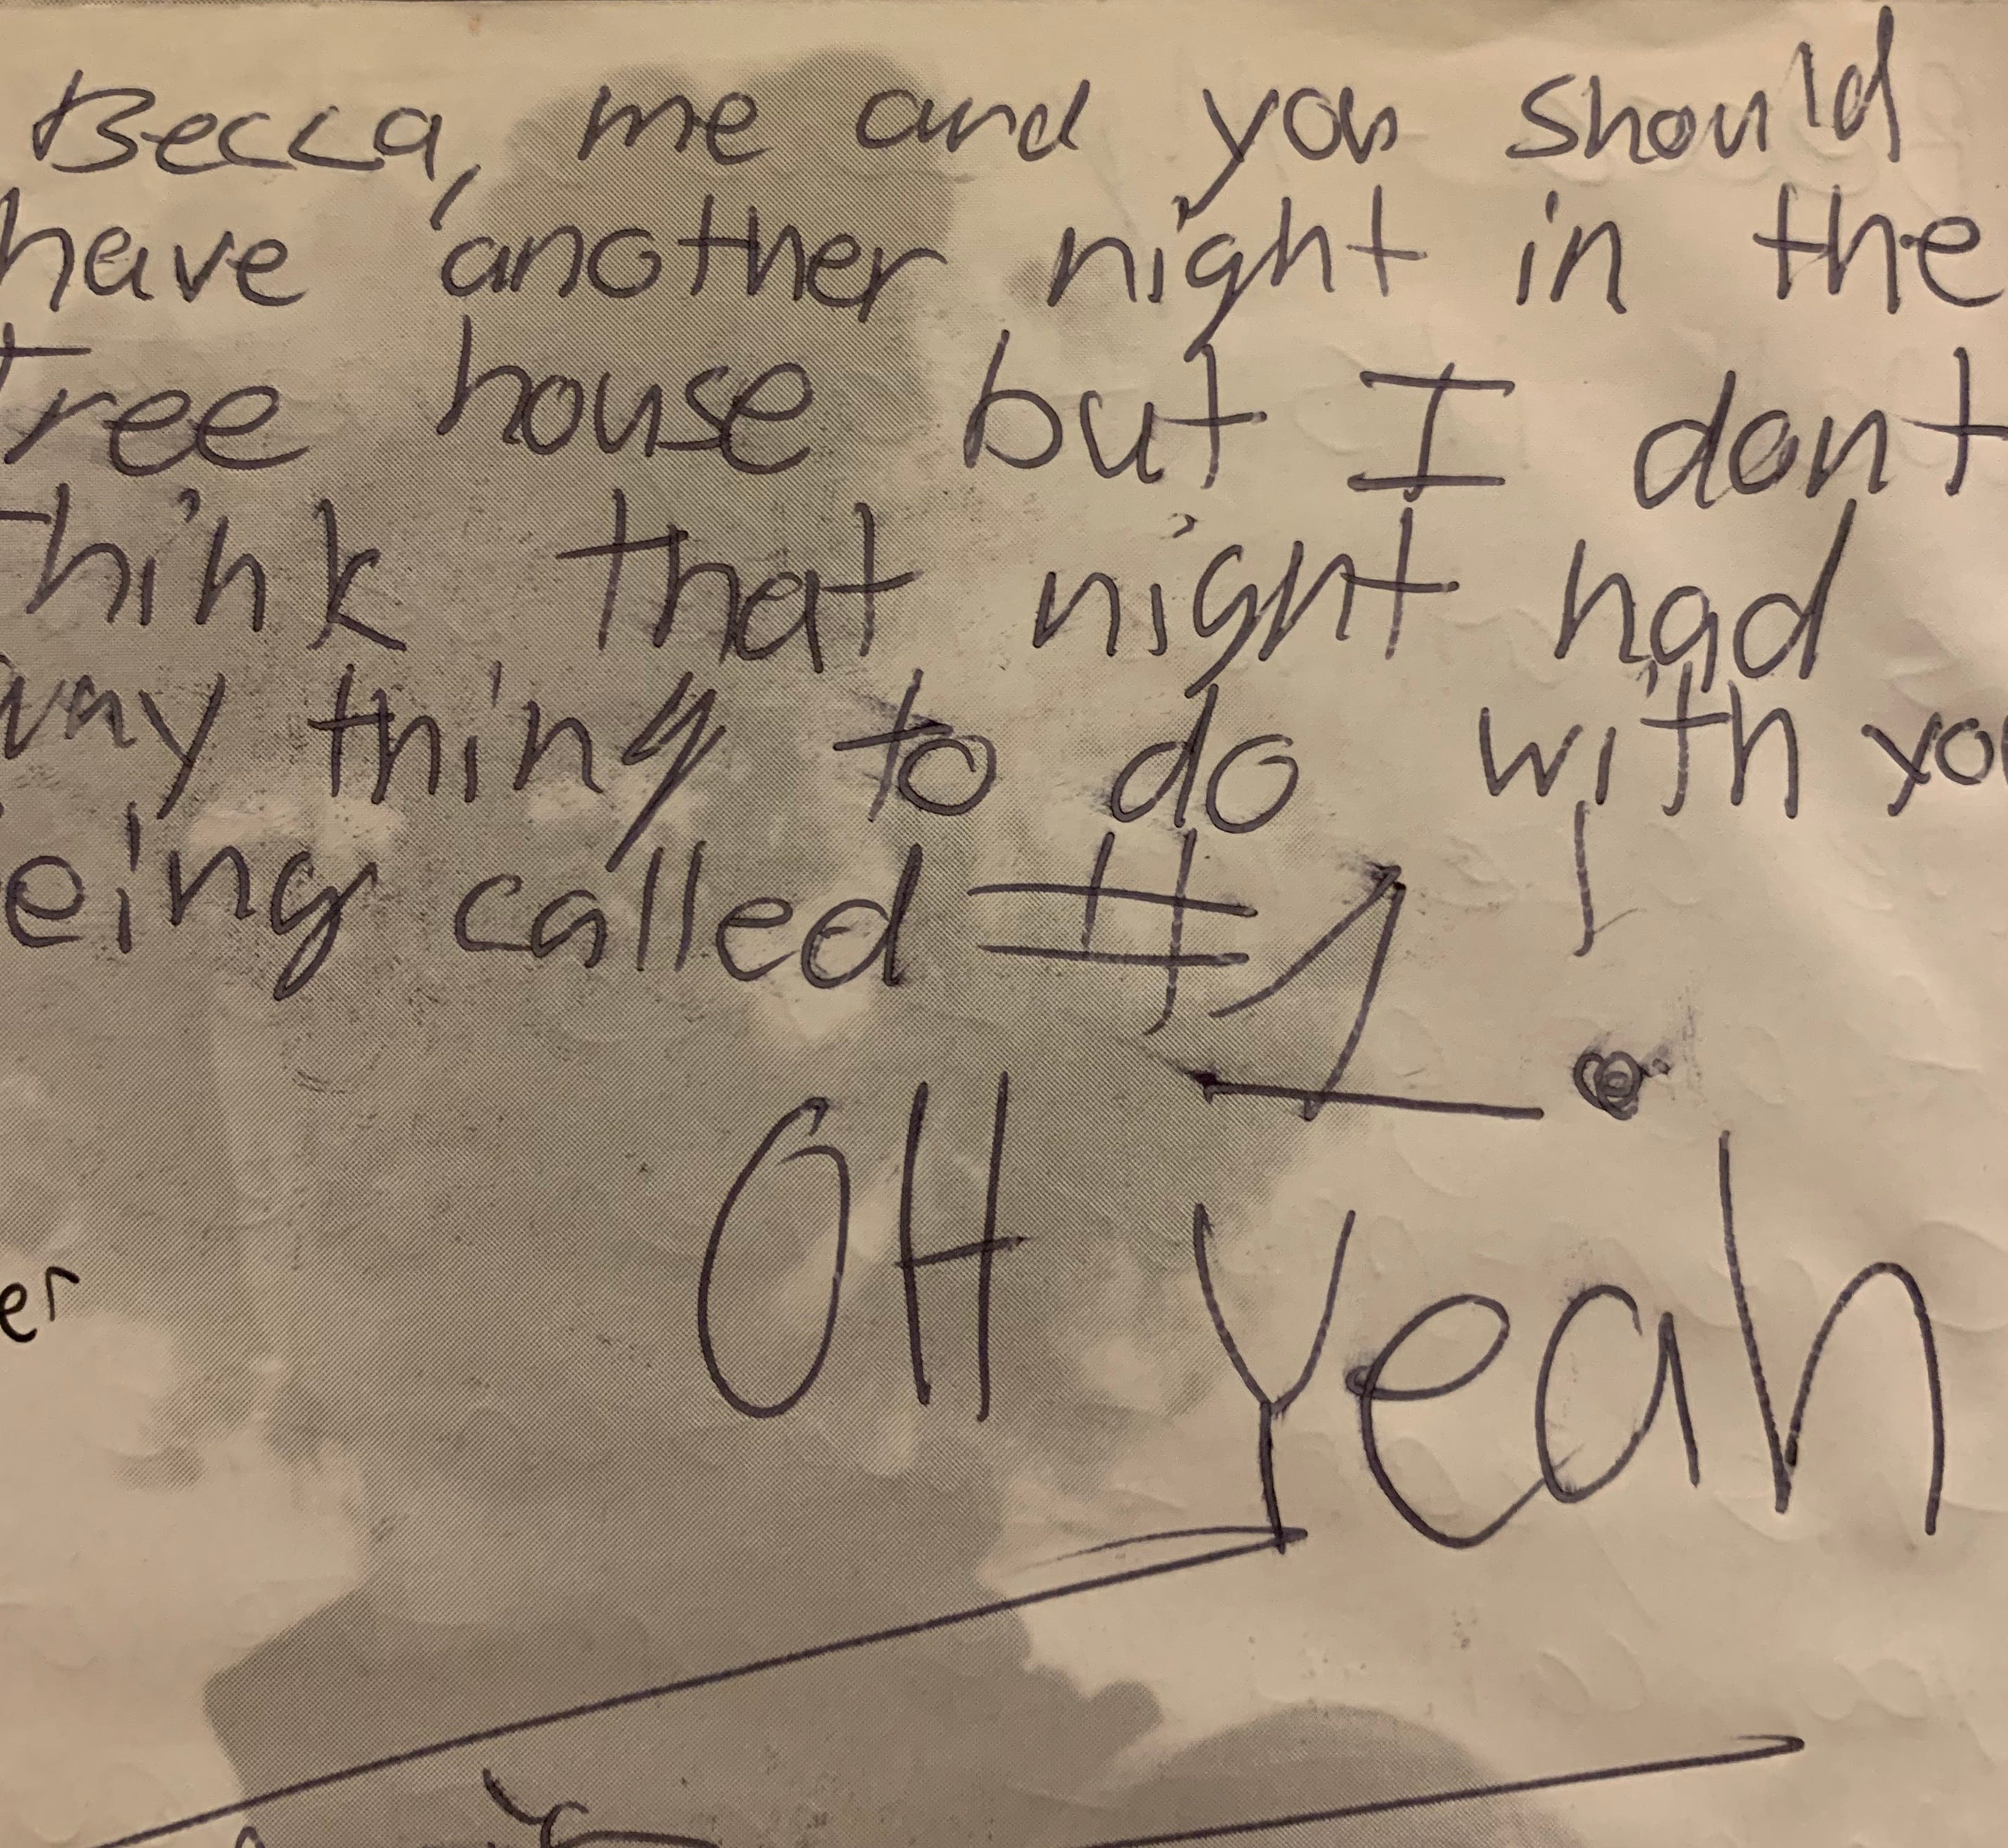 Becca, me and you should
have another night in the
tree house but I dont
think that night had
any thing to do with you
eing called #1!
OH Yeah
er